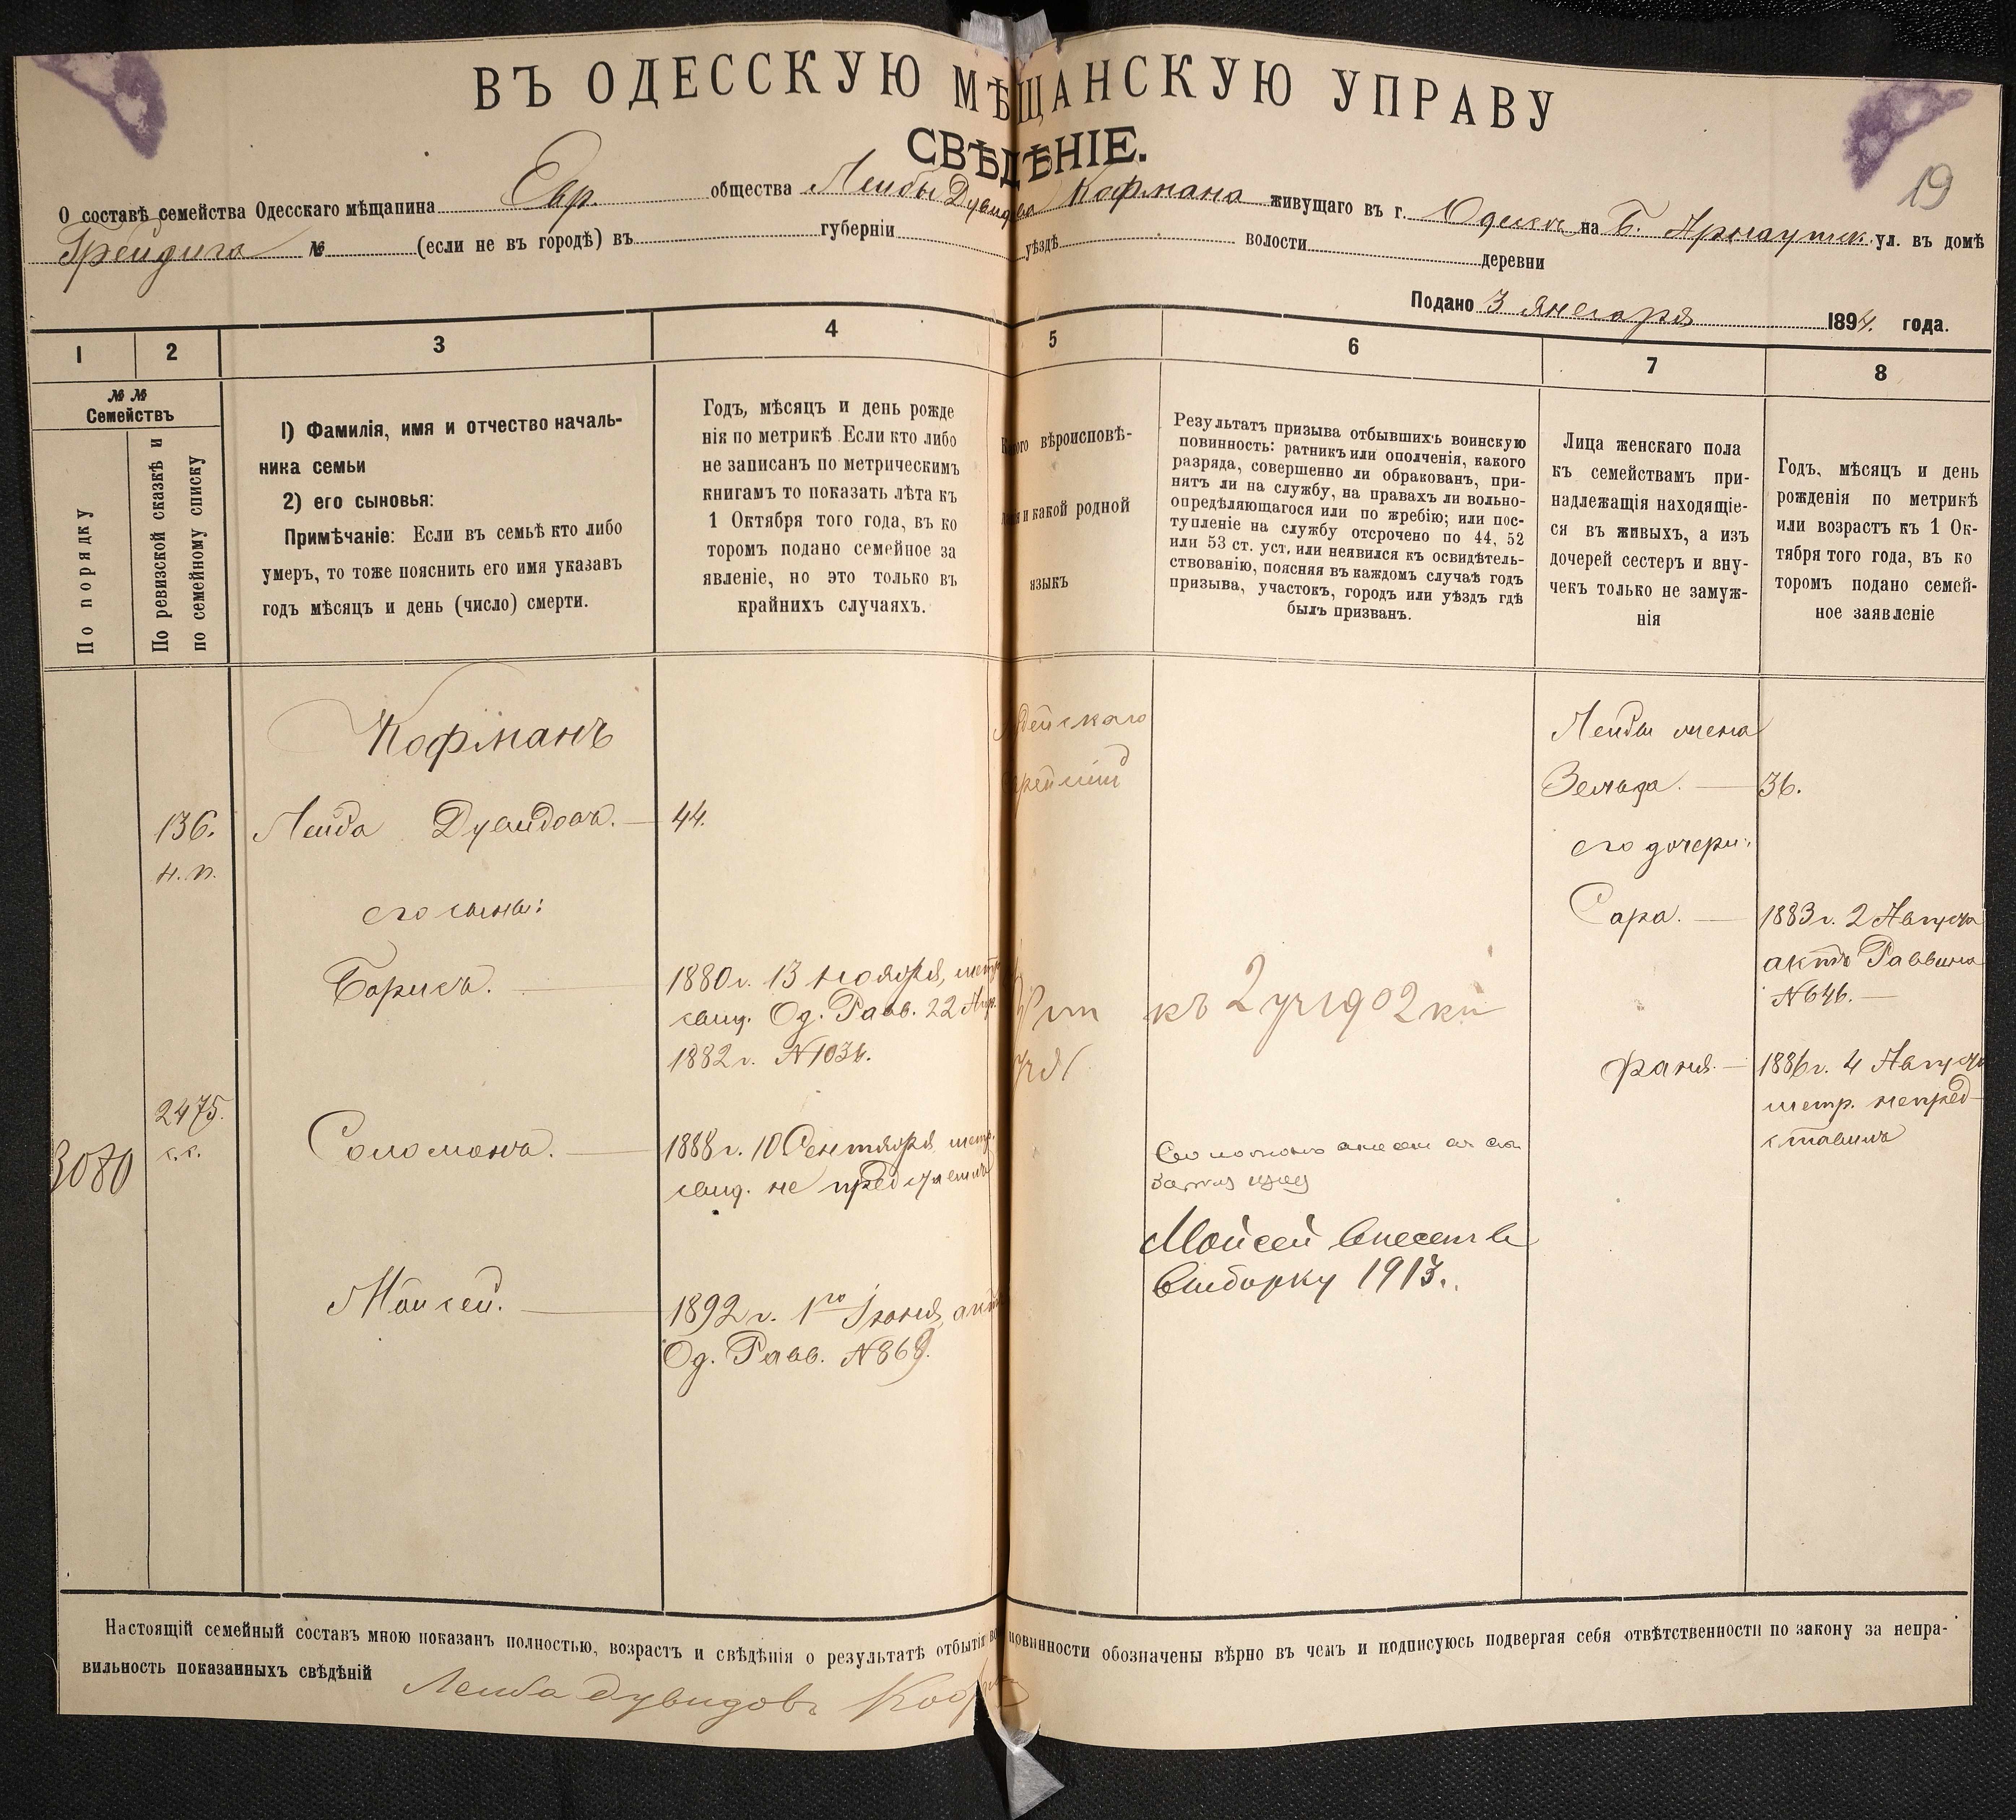 ВЪ ОДЕССКУЮ МѢЩАНСКУЮ УПРАВУ
СВѢДѢНІЕ.
19
О составѣ семейства Одесскаго мѣщанина Евр. общества Лейбы Дувидова Кофмана живущаго въ г. Одессѣ на Б. Арнаутск. ул. въ домѣ
Грейдига № (если не въ городѣ) въ губерніи уѣздѣ волости деревни
Подано 3 января 1894 года.
1 2 3 4 5 6 7 8
№ №
Семействъ
По порядку
По ревизской сказкѣ и
по семейному списку
1) Фамилія, имя и отчество началь-
ника семьи
2) его сыновья:
Примѣчаніе: Если въ семьѣ кто либо
умеръ, то тоже пояснить его имя указавъ
годъ мѣсяцъ и день (число) смерти.
Годъ, мѣсяцъ и день рожде
нія по метрикѣ. Если кто либо
не записанъ по метрическимъ
книгамъ то показать лѣта къ
1 Октября того года, въ ко
торомъ подано семейное за
явленіе, но это только въ
крайнихъ случаяхъ.
вѣроисповѣ-
и какой родной
языкъ
Результатъ призыва отбывшихъ воинскую
повинность: ратникъ или ополченія, какого
разряда, совершенно ли обракованъ, при-
нятъ ли на службу, на правахъ ли вольно-
опредѣляющагося или по жребію; или пос-
тупленіе на службу отсрочено по 44, 52
или 53 ст. уст. или неявился къ освидѣтель-
ствованію, поясняя въ каждомъ случаѣ годъ
призыва, участокъ, городъ или уѣздъ гдѣ
былъ призванъ.
Лица женскаго пола
къ семействамъ при-
надлежащія находящіе-
ся въ живыхъ, а изъ
дочерей сестеръ и вну-
чекъ только не замуж-
нія
Годъ, мѣсяцъ и день
рожденія по метрикѣ
или возрастъ къ 1 Ок-
тября того года, въ ко
торомъ подано семей-
ное заявленіе
Кофманъ
136. Лейба Дувидовъ. 44.
н. п.
его сыны:
Борисъ. 1880 г. 13 ноября, метр.
свид. Од. Равв. 22 Апр.
1882 г. № 1036.
2475.
с. с.
3080
Соломонъ. 1888 г. 10 Сентября, метр.
свид. не представилъ
Мойсей. 1892 г. 1го Іюня, актъ
Од. Равв. № 869.
къ 2 уч 1902
Мойсей внесенъ въ
выборку 1913.
Лейбы жена
Зельда. 36.
его дочери:
Сара. 1883 г. 2 Августа
актъ Раввина
№ 646.
Фаня. 1886 г. 4 Августа
метр. непред-
ставилъ
Настоящій семейный составъ мною показанъ полностью, возрастъ и свѣдѣнія о результатѣ отбытія повинности обозначены вѣрно въ чемъ и подписуюсь подвергая себя отвѣтственности по закону за непра-
вильность показанныхъ свѣдѣній
Лейба Дувидовъ